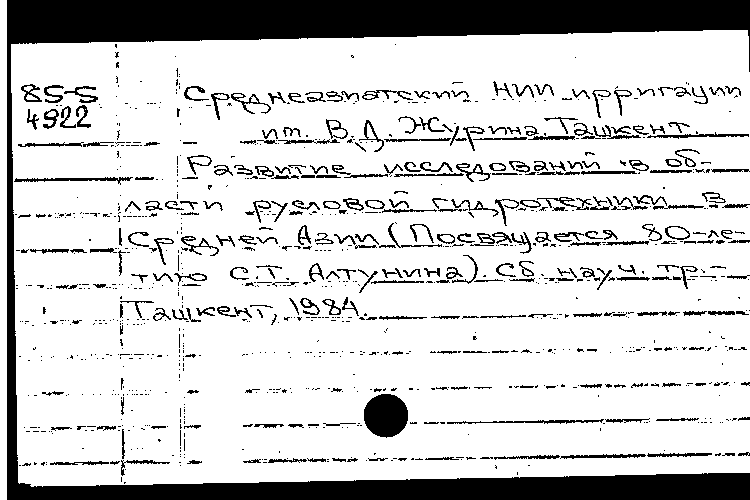 85-5
4922
Среднеазиатский НИИ ирригации
им. В.Д. Журина. Ташкент.
Развитие исследований в об-
ласти русловой гидротехники в
Средней Азии (Посвящается 80-ле-
тию С.Т. Алтунина). Сб. науч. тр.-
Ташкент, 1984.